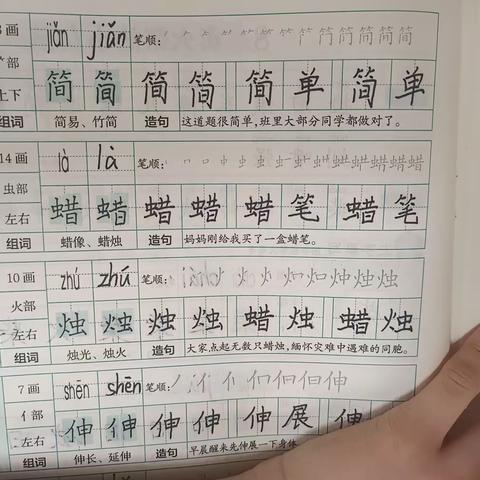 3画 jiǎn jiǎn 笔顺:
部 简 简 简 简 简 单 简 单
上下
组词 简易、竹简 造句 这道题很简单,班里大部分同学都做对了。
14画 là là 笔顺:
虫部 蜡 蜡 蜡 蜡 蜡 笔 蜡 笔
左右
组词 蜡像、蜡烛 造句 妈妈刚给我买了一盒蜡笔。
10画 zhú zhú 笔顺:
火部 烛 烛 烛 烛 蜡 烛 蜡 烛
左右
组词 烛光、烛火 造句 大家点起无数只蜡烛,缅怀灾难中遇难的同胞。
7画 shēn shēn 笔顺:
亻部 伸 伸 伸 伸 伸 展 伸
左右
组词 伸长、延伸 造句 早晨醒来先伸展一下身体